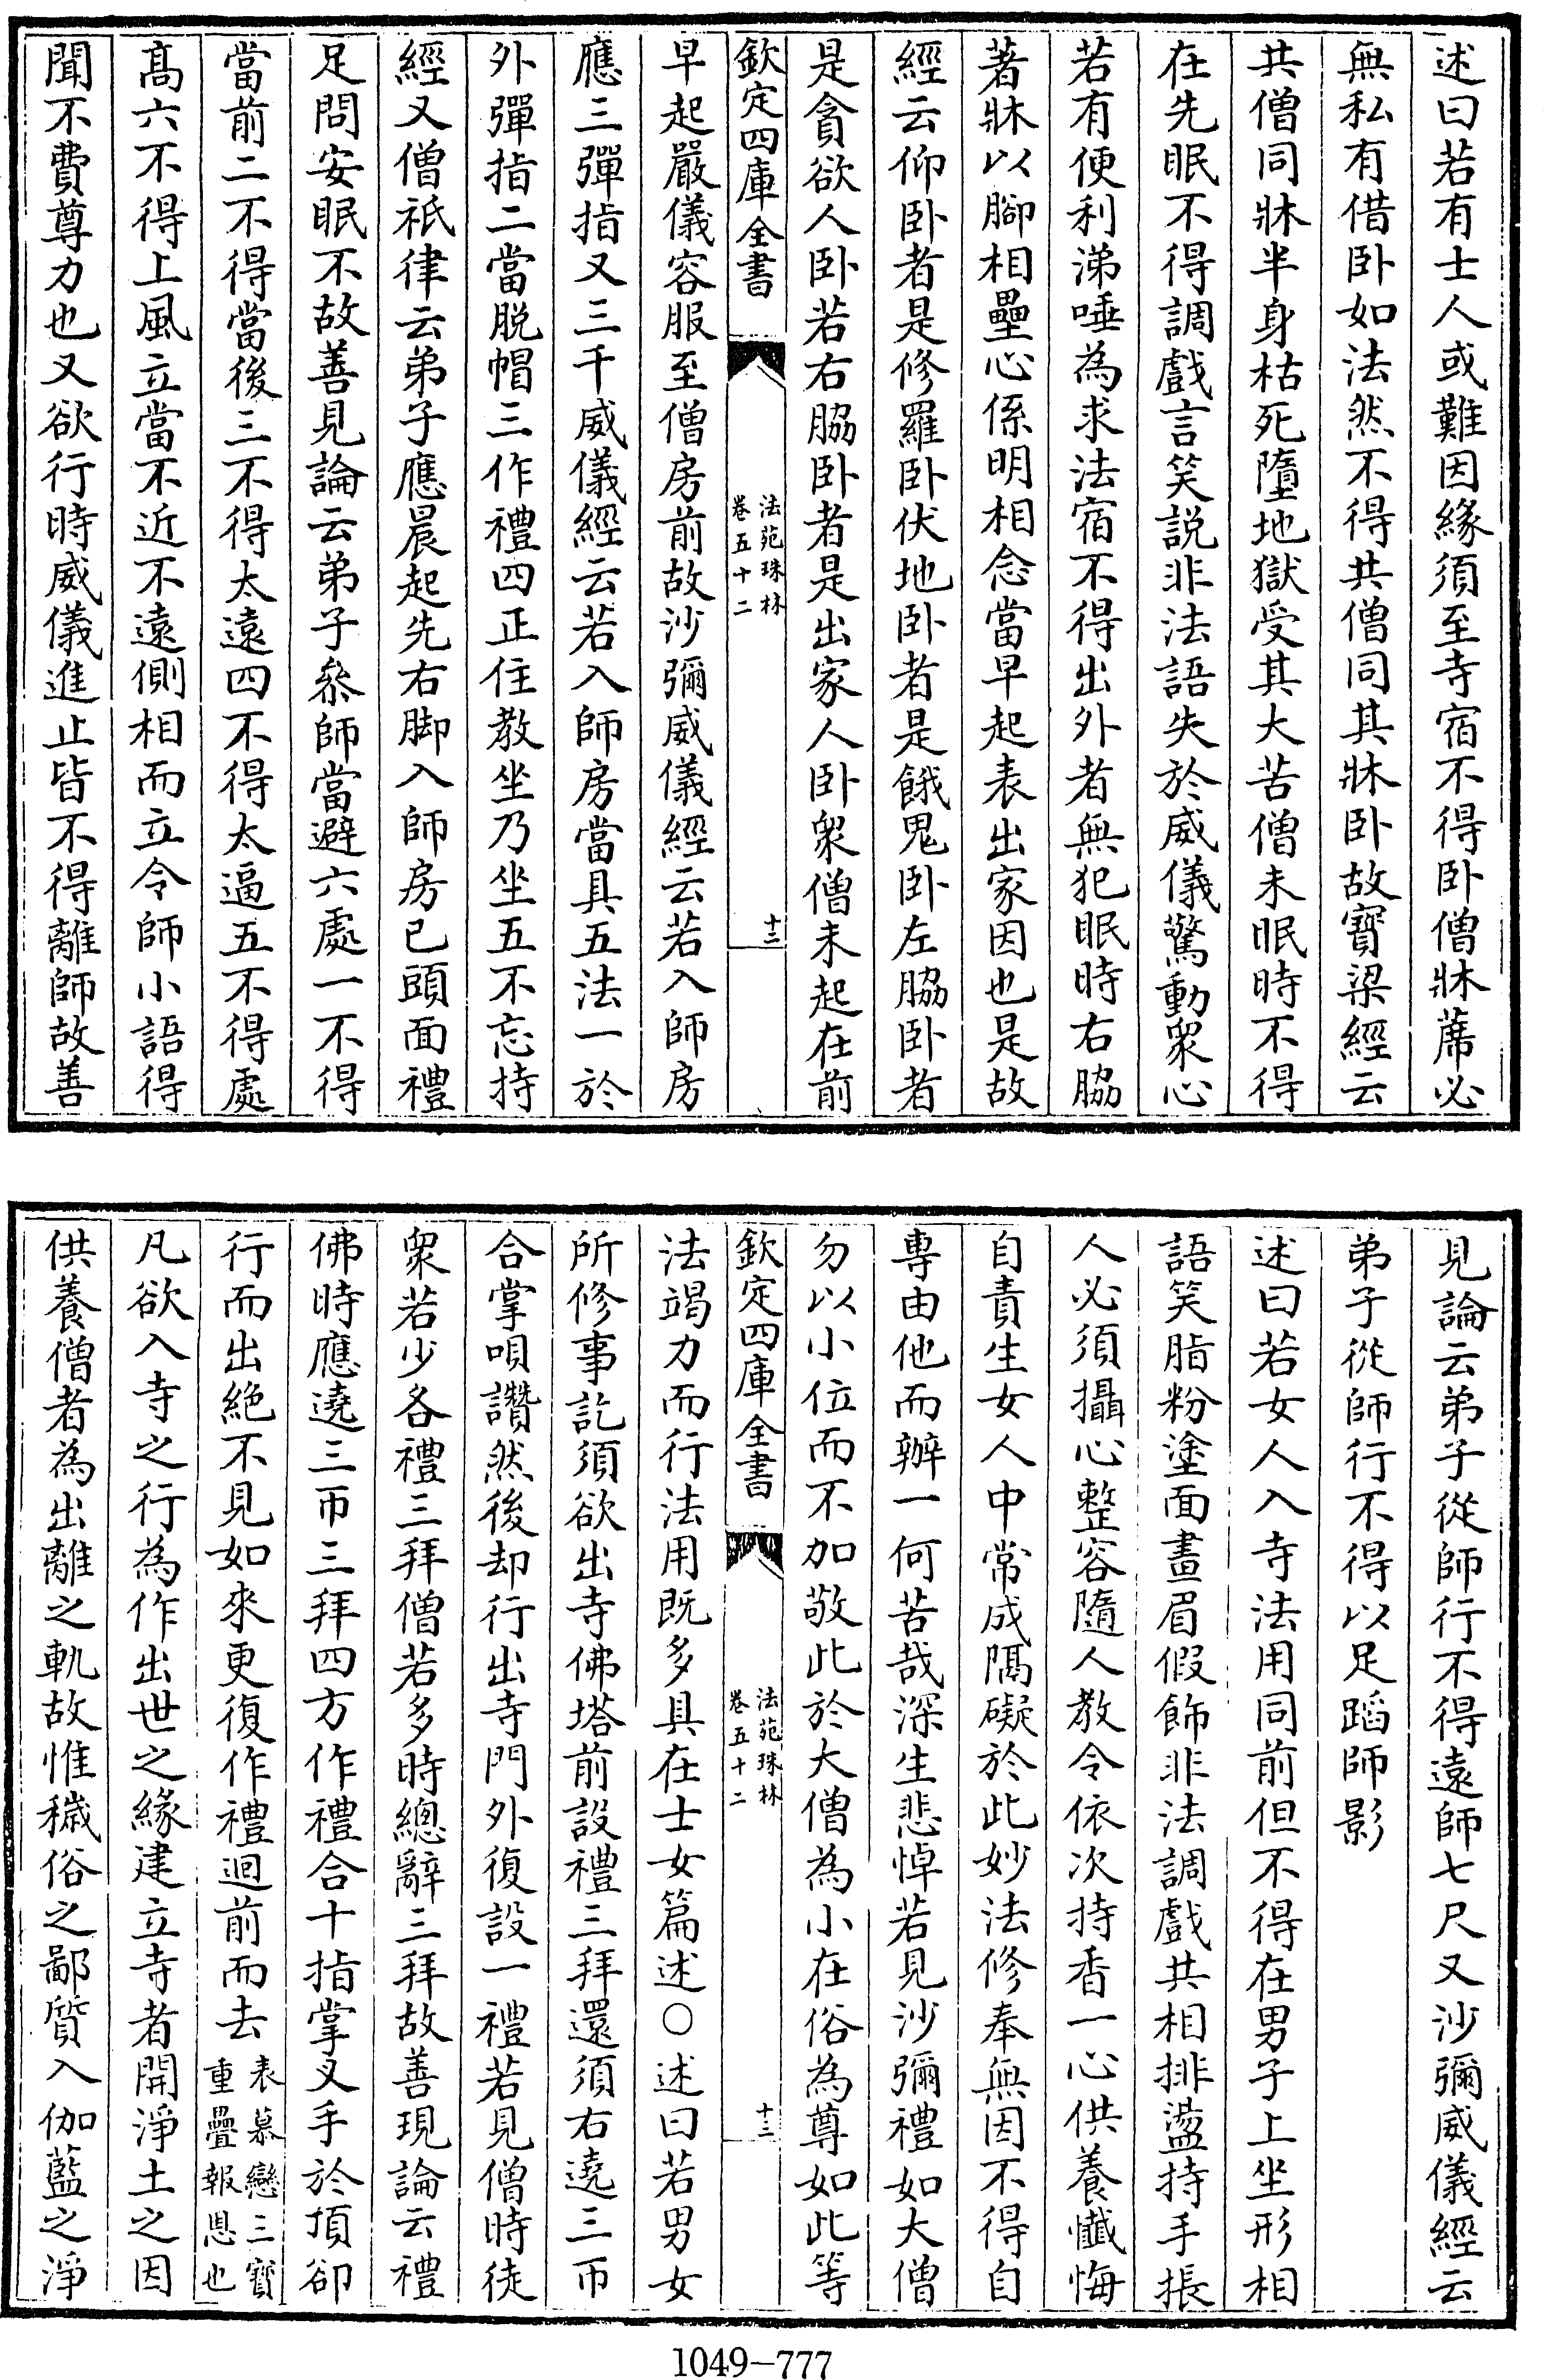 述曰若有士人或難因緣須至寺宿不得卧僧牀蓆必
無私有借卧如法然不得共僧同其牀卧故寶梁經云
共僧同牀半身枯死墮地獄受其大苦僧未眠時不得
在先眠不得調戲言笑説非法語失於威儀驚動衆心
若有便利涕唾為求法宿不得出外者無犯眠時右脇
著牀以腳相壘心係明相念當早起表出家因也是故
經云仰卧者是修羅卧伏地卧者是餓鬼卧左脇卧者
是貪欲人卧若右脇卧者是出家人卧衆僧未起在前
欽定四庫全書
法苑珠林
卷五十二
十二
早起嚴儀容服至僧房前故沙彌威儀經云若入師房
應三彈指又三千威儀經云若入師房當具五法一於
外彈指二當脱帽三作禮四正住教坐乃坐五不忘持
經又僧祇律云弟子應晨起先右脚入師房已頭面禮
足問安眠不故善見論云弟子叅師當避六處一不得
當前二不得當後三不得太遠四不得太逼五不得處
髙六不得上風立當不近不遠側相而立令師小語得
聞不費尊力也又欲行時威儀進止皆不得離師故善
見論云弟子從師行不得遠師七尺又沙彌威儀經云
弟子從師行不得以足蹈師影
述曰若女人入寺法用同前但不得在男子上坐形相
語笑脂粉塗面畫眉假飾非法調戲共相排盪持手振
人必須攝心整容隨人教令依次持香一心供養懺悔
自責生女人中常成隔礙於此妙法修奉無因不得自
專由他而辦一何苦哉深生悲悼若見沙彌禮如大僧
勿以小位而不加敬此於大僧為小在俗為尊如此等
欽定四庫全書
法苑珠林
卷五十二
十三
法竭力而行法用既多具在士女篇述○述曰若男女
所修事訖須欲出寺佛塔前設禮三拜還須右遶三帀
合掌唄讚然後却行出寺門外復設一禮若見僧時徒
衆若少各禮三拜僧若多時總辭三拜故善現論云禮
佛時應遶三帀三拜四方作禮合十指掌叉手於頂卻
行而出絶不見如來更復作禮迴前而去表慕戀三寶重疊報恩也
凡欲入寺之行為作出世之緣建立寺者開淨土之因
供養僧者為出離之軌故惟穢俗之鄙質入伽藍之淨
1049-777